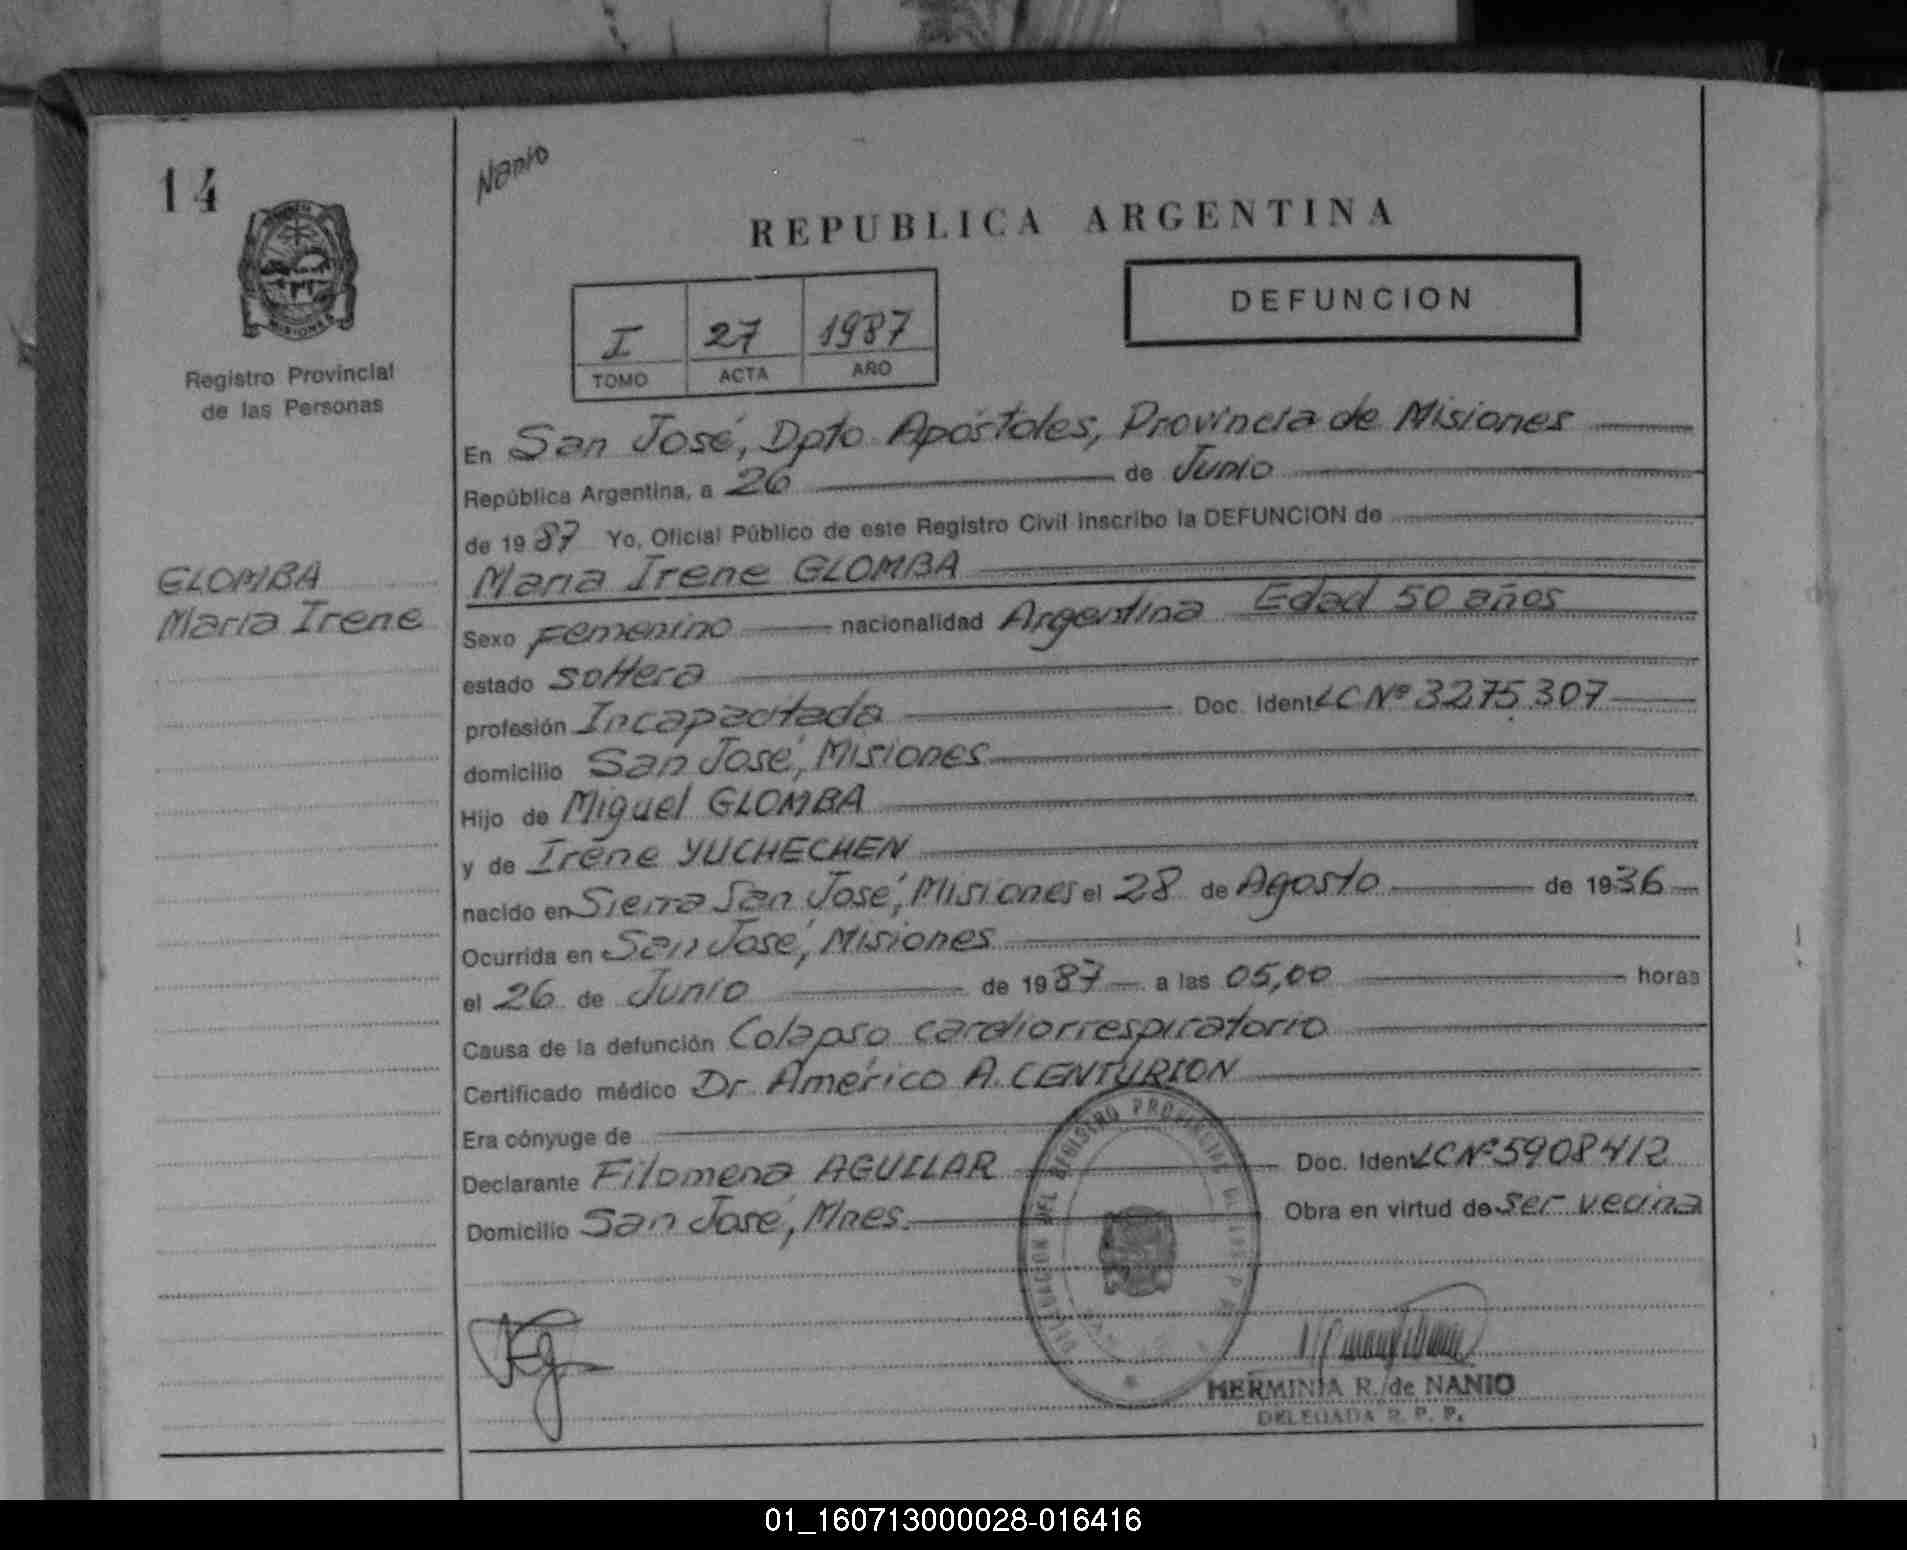 14
Nanio
REPUBLICA ARGENTINA
MISIONES
Registro Provincial
de las Personas
I 27 1987
TOMO ACTA AÑO
DEFUNCION
En San José, Dpto Apóstoles, Provincia de Misiones
República Argentina, a 26 de Junio
de 1987 Yo, Oficial Público de este Registro Civil inscribo la DEFUNCION de
GLOMBA
María Irene
María Irene GLOMBA
Sexo femenino nacionalidad Argentina Edad 50 años
estado soltera
profesión Incapacitada Doc. Ident LC Nº 3275307
domicilio San José, Misiones
Hijo de Miguel GLOMBA
y de Irene YUCHECHEN
nacido en Sierra San José, Misiones el 28 de Agosto de 1936
Ocurrida en San José, Misiones
el 26 de Junio de 1987 a las 05,00 horas
Causa de la defunción Colapso cardiorrespiratorio
Certificado médico Dr. Américo A. CENTURION
Era cónyuge de
Declarante Filomena AGUILAR Doc. Ident LC Nº 5908412
Domicilio San José, Mnes. Obra en virtud de ser vecina
DELEGACION DEL REGISTRO PROVINCIAL DE LAS P
HERMINIA R. de NANIO
DELEGADA R. P. P.
01_160713000028-016416